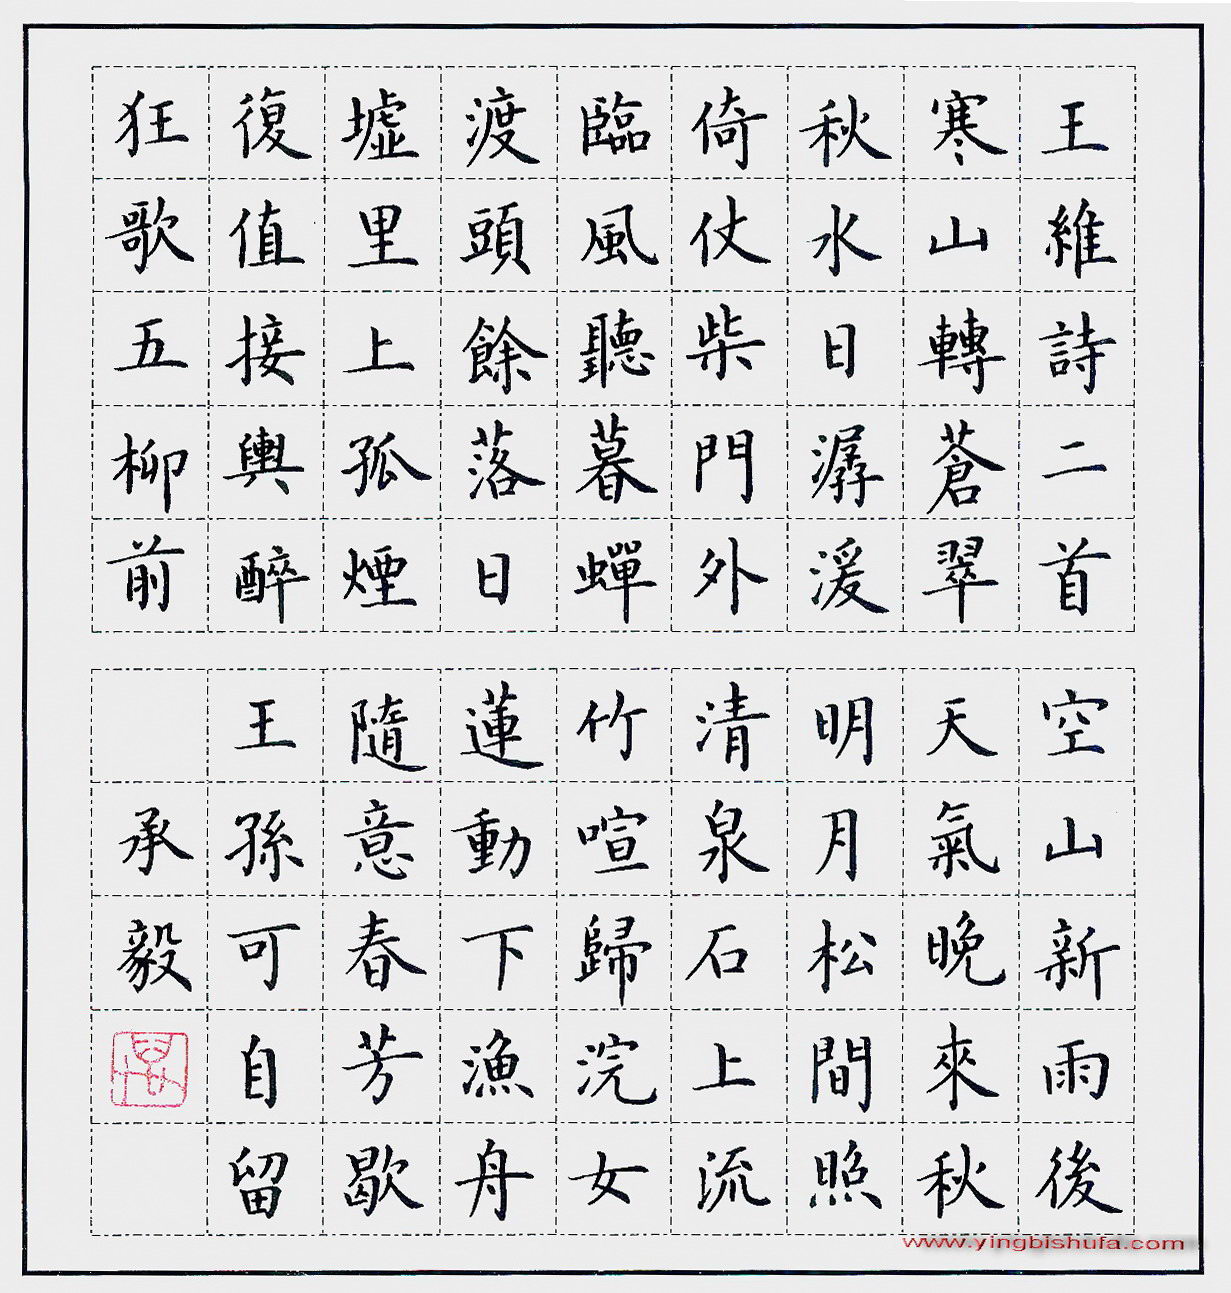 王維詩二首
寒山轉蒼翠
秋水日潺湲
倚仗柴門外
臨風聽暮蟬
渡頭餘落日
墟里上孤煙
復值接輿醉
狂歌五柳前
空山新雨後
天氣晚來秋
明月松間照
清泉石上流
竹喧歸浣女
蓮動下漁舟
隨意春芳歇
王孫可自留
承毅
www.yingbishufa.com